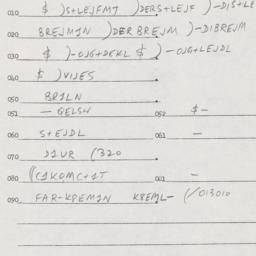 010 $ )S+LEJFMT )DERS+LEJF )-DIS+LE
020 BREJMIN )DERBREJM )-DIBREJM
030 $ )-OJG+DEKL $ )-OJG+LEJDL
040 $ )VIJES
050 BRILN
051 — GELSN 052 $-
060 S+EJDL 061 -
070 JIUR (320
080 061 -
090 FAR-KREMIN KREML- (/013010